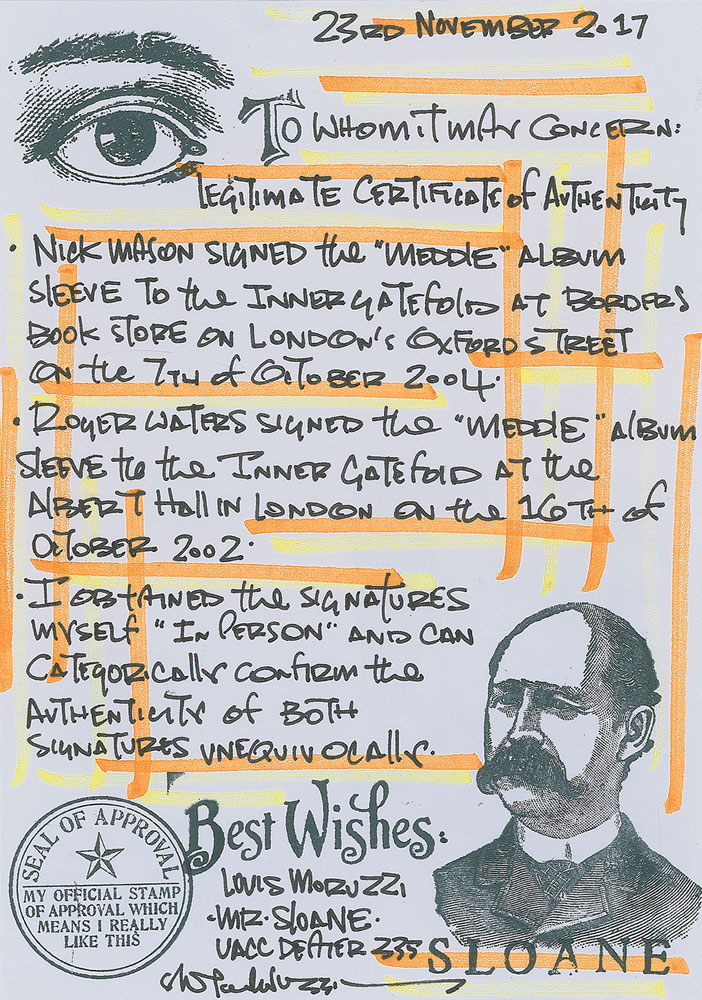 23RD NOVEMBER 2.017
TO WHOM iT MAY CONCERN:
LEGITIMATE CERTIFICATE of AUTHENTICITY
· NICK MASON SIGNED the "MEDDLE" ALBUM
SLEEVE TO the INNER GATEFOLD AT BORDERS
BOOK STORE ON LONDON'S OXFORD STREET
ON the 7TH of OCTOBER 2004.
· ROGER WATERS SIGNED the "MEDDLE" ALBUM
SLEEVE to the INNER GATEFOLD AT the
ALBERT Hall IN LONDON ON the 16TH of
OCTOBER 2002.
· I OBTAINED the SIGNATURES
MYSELF "IN PERSON" AND CAN
CATEGORICALLY CONFIRM the
AUTHENTICITY OF BOTH
SIGNATURES UNEQUIVOCALLY.
Best Wishes:
LOUIS MORUZZI
·MR. SLOANE·
UACC DEALER 335
SLOANE
SEAL OF APPROVAL
MY OFFICIAL STAMP
OF APPROVAL WHICH
MEANS I REALLY
LIKE THIS